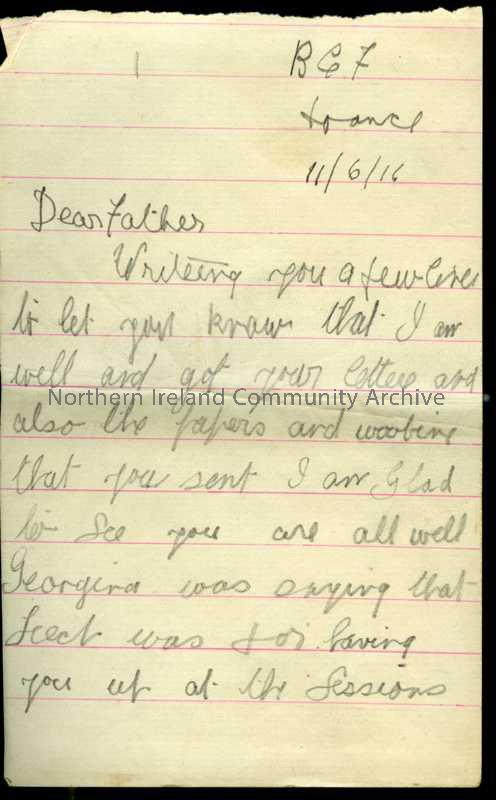 1
B E F
France
11/6/16
Dear Father
Writeing you a few lines
to let you know that I am
well and got your letter and
Northern Ireland Community Archive
also the papers and woobine
that you sent I am Glad
to See you are all well
Georgina was saying that
was for having
you up at the Sessions